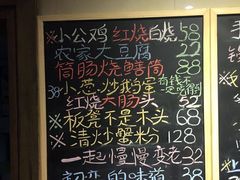 ※小公鸡 红烧 白烧 58
农家大豆腐 22
筒肠烧鳝筒 88
38 小葱炒鸡蛋
红烧大肠头 52
※板凳不是木头 68
※清炒蟹粉 128
一起慢慢变老 32
38 的味道